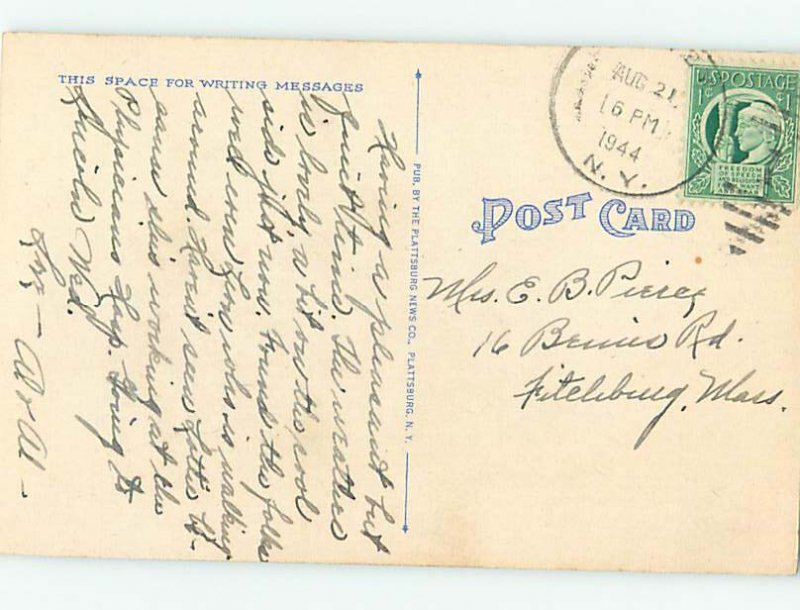 THIS SPACE FOR WRITING MESSAGES
Having a pleasant but
quiet time. The weather
is lovely a bit on the cool
side just now. Found the folks
well even who is walking
around. Havent seen Lottie
cause she's working at the
Physicians Hosp. Going to
Lincoln Wed.
Al -
PUB. BY THE PLATTSBURG NEWS CO., PLATTSBURG, N. Y.
AUG 21
6 PM
1944
N. Y.
U.S. POSTAGE
1¢ ¢1
FREEDOM
OF SPEECH
AND RELIGION
FROM WANT
POST CARD
Mrs. E. B. Pierce
16 Bemis Rd.
Fitchburg, Mass.